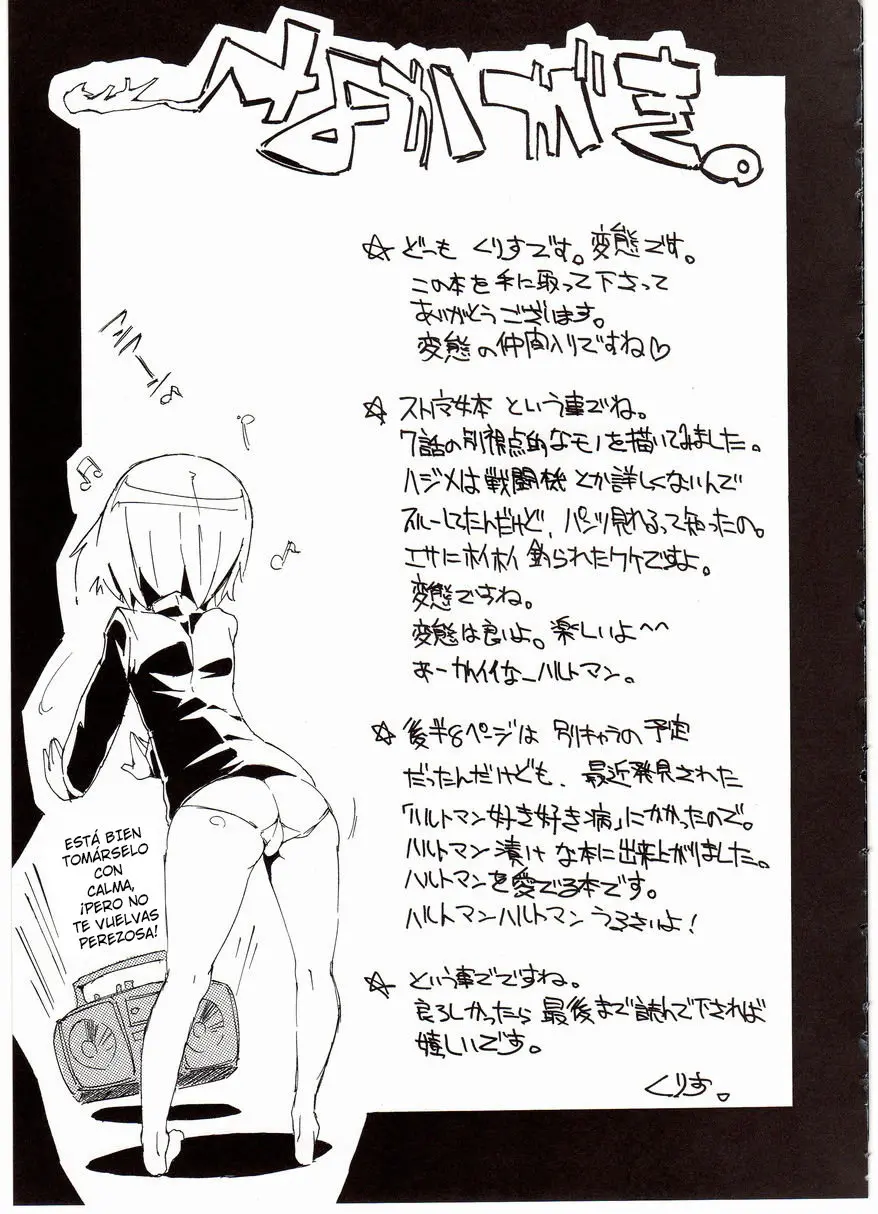 なかがき。
☆どーも くりすです。変態です。
この本を手に取って下さって
ありがとうございます。
変態の仲間入りですね♡
☆ストパン本 という事でね。
7話の別視点的なモノを描いてみました。
ハジメは戦闘機とか詳しくないんで
スルーしてたんだけど、パンツ見れるって知ったの。
エサにホイホイ釣られたワケですよ。
変態ですね。
変態は良いよ。楽しいよ〜〜
あーかわイイなーハルトマン。
☆後半8ページは 別キャラの予定
だったんだけども、最近発見された
「ハルトマン好き好き病」にかかったので。
ハルトマン漬けな本に出来上がりました。
ハルトマンを愛でる本です。
ハルトマンハルトマンうるさいよ!
☆という事でですね。
良ろしかったら最後まで読んで下されば
嬉しいです。
くりす。
ESTÁ BIEN
TOMÁRSELO
CON
CALMA,
¡PERO NO
TE VUELVAS
PEREZOSA!